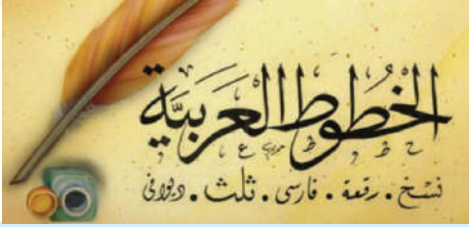 الخُطوط العَربيَّة
نسخ . رقعة . فارسى . ثلث . ديوانى